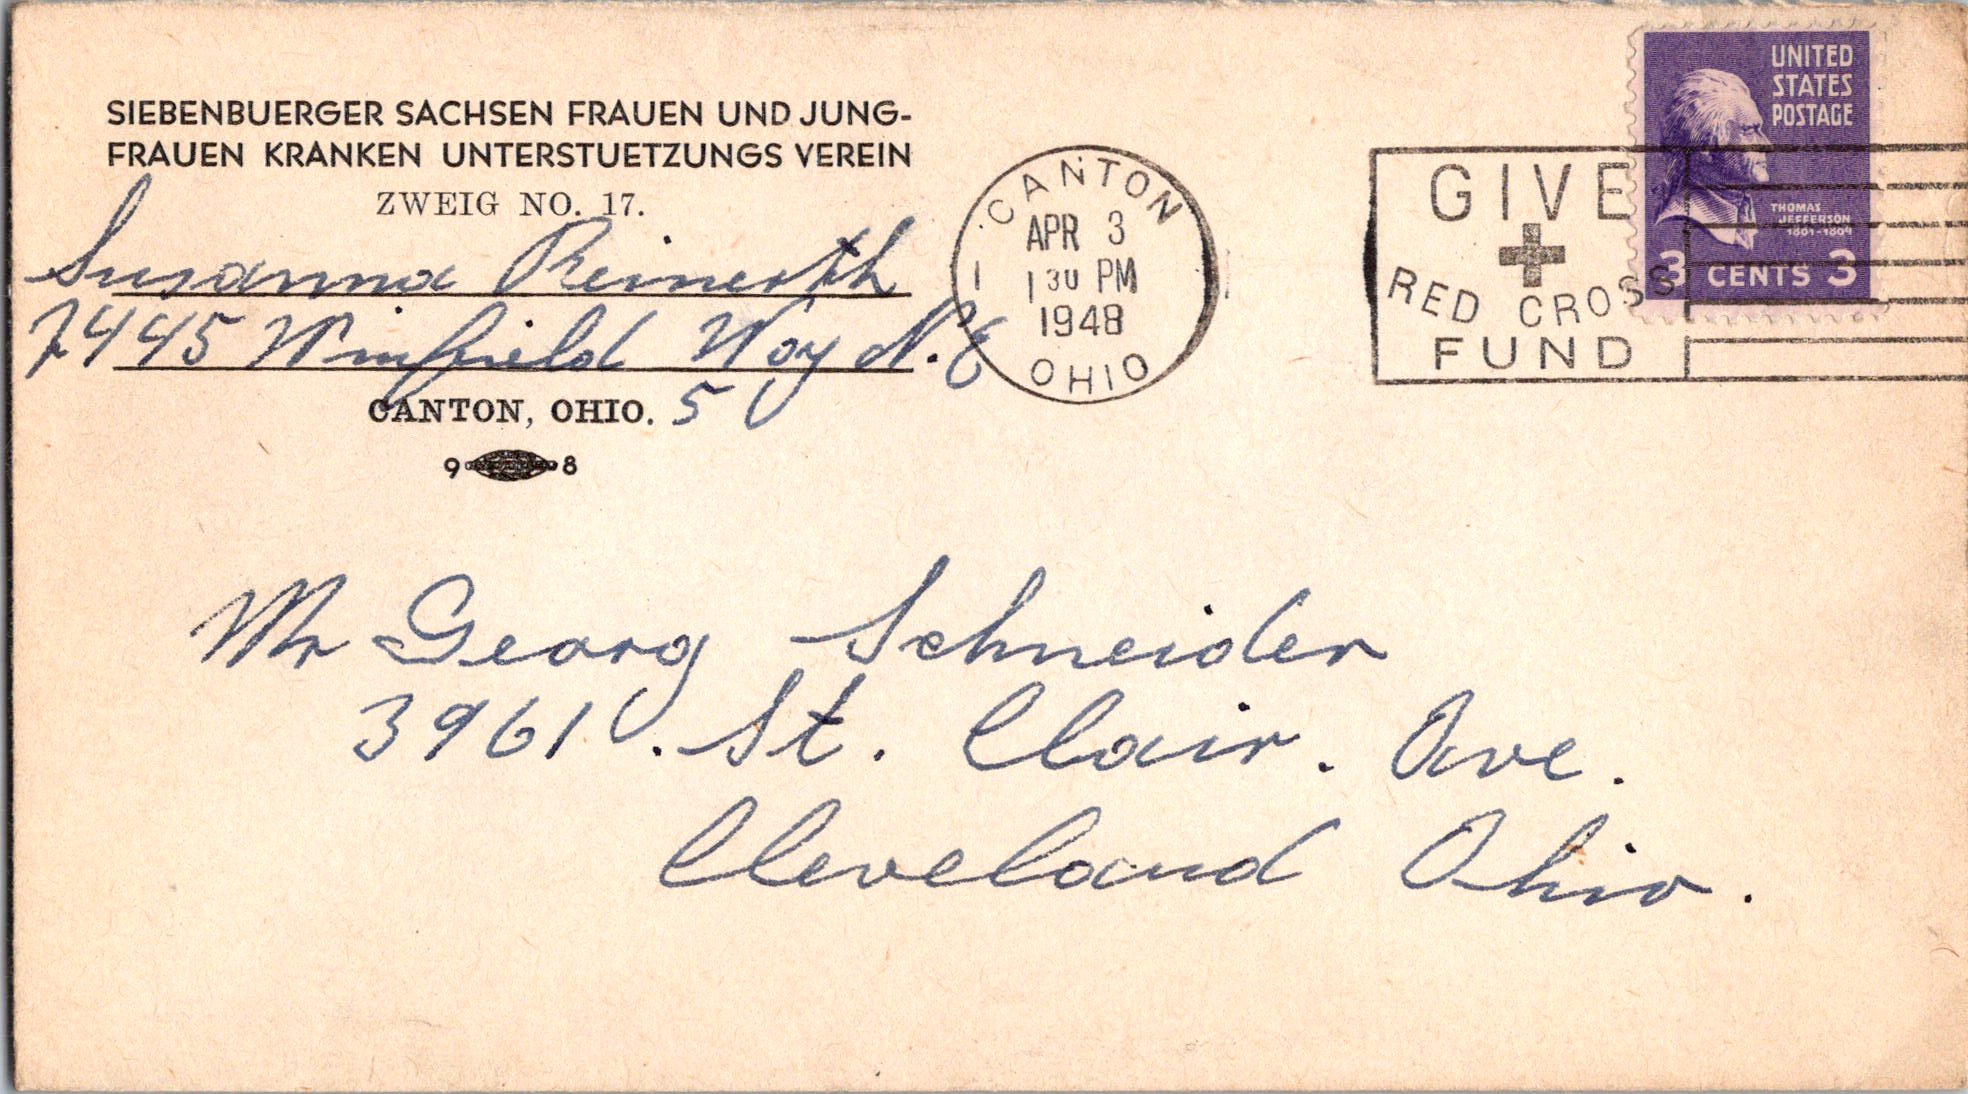 SIEBENBUERGER SACHSEN FRAUEN UND JUNG-
FRAUEN KRANKEN UNTERSTUETZUNGS VEREIN
ZWEIG NO. 17.
Susanna Reinerth
7445 Winfield Way N.E
CANTON, OHIO. 5
9 8
CANTON
APR 3
1 30 PM
1948
OHIO
1
GIVE
RED CROSS
FUND
UNITED
STATES
POSTAGE
THOMAS
JEFFERSON
1801-1809
3 CENTS 3
Mr Georg Schneider
3961. St. Clair. Ave.
Cleveland Ohio.